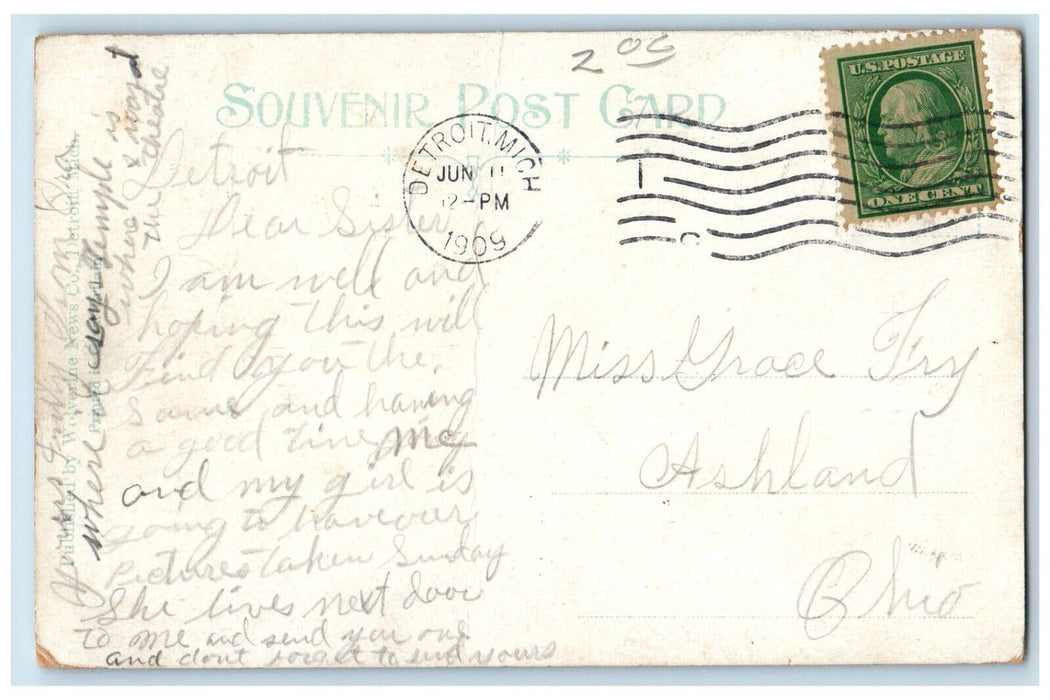 205
U.S. POSTAGE
ONE CENT
SOUVENIR POST CARD
DETROIT, MICH
JUN 11
12-PM
1909
Detroit
Dear Sister
I am well and
hoping this will
Find you the
Same and having
a good time Me
and my girl is
going to have our
Pictures taken Sunday
She lives next door
to me and send you one
and dont forget to send yours
Miss Grace Fry
Ashland
Ohio
Published by Wolverine News Co., Detroit, Mich.
where it says Temple is
where I
the Theatre